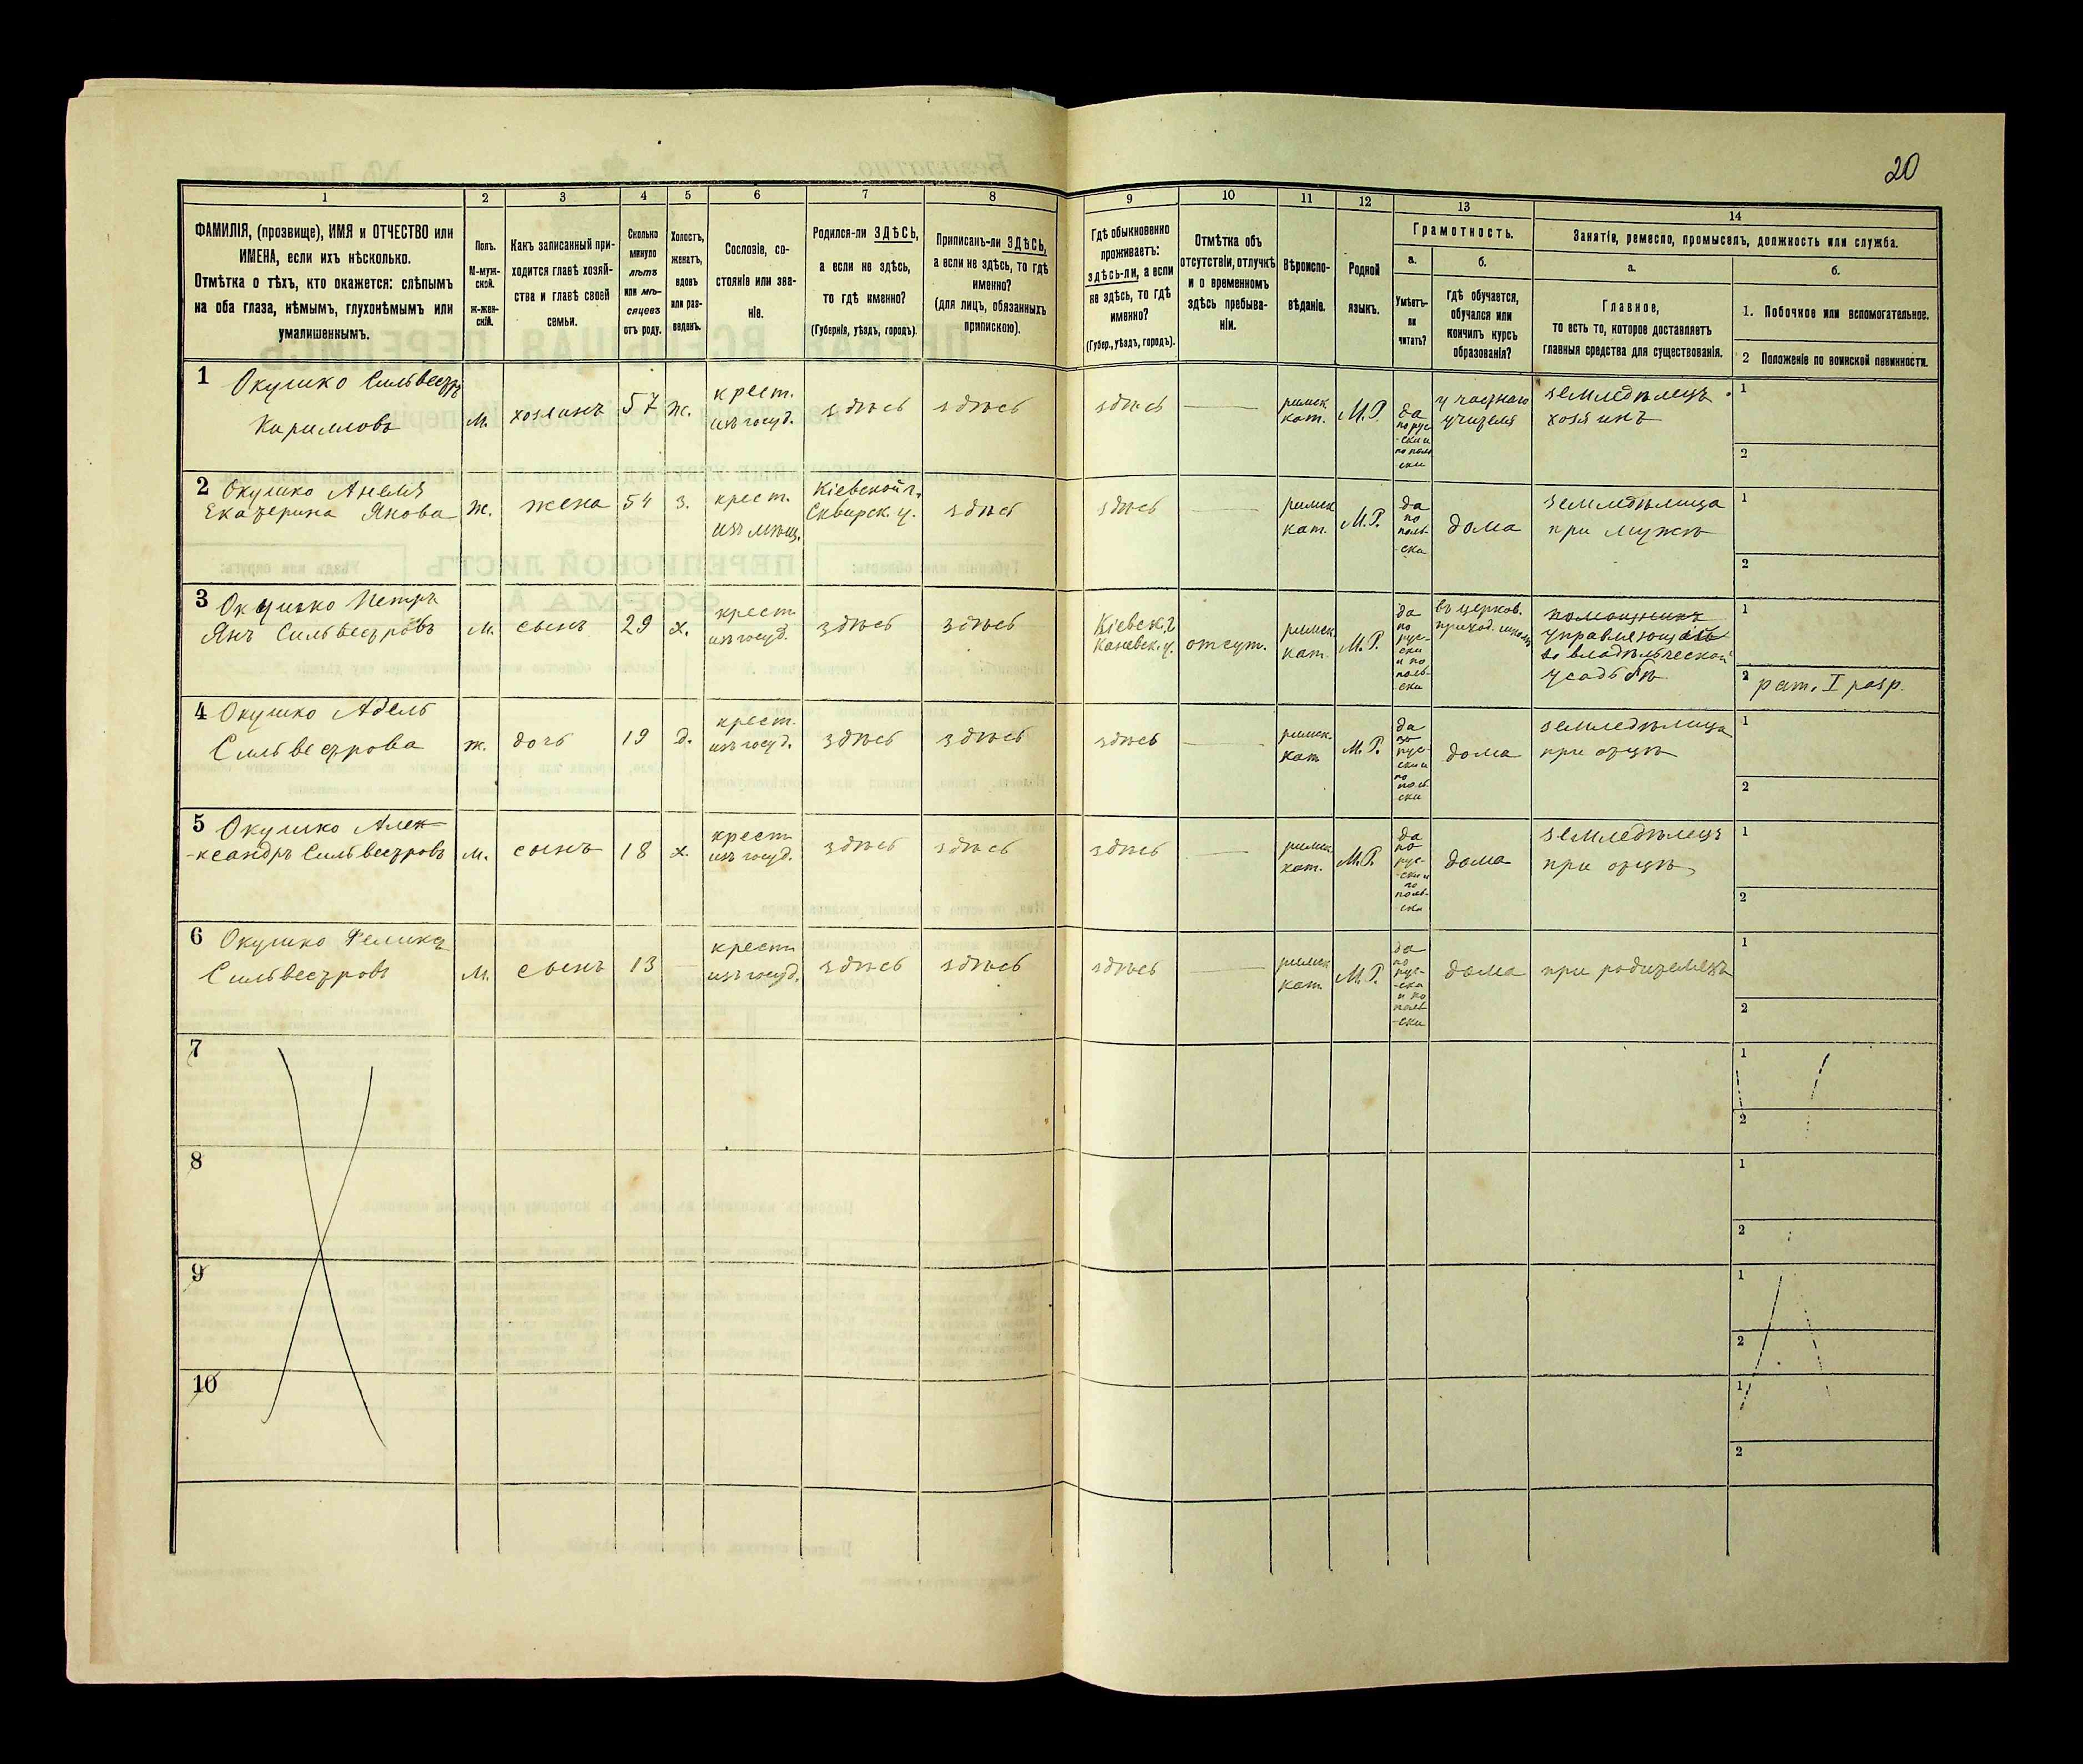 20
1
2
3
4
5
6
7
8
9
10
11
12
13
14
ФАМИЛІЯ, (прозвище), ИМЯ и ОТЧЕСТВО или
ИМЕНА, если ихъ нѣсколько.
Отмѣтка о тѣхъ, кто окажется: слѣпымъ
на оба глаза, нѣмымъ, глухонѣмымъ или
умалишеннымъ.
Полъ.
М-муж-
ской.
ж-жен-
скій.
Какъ записанный при-
ходится главѣ хозяй-
ства и главѣ своей
семьи.
Сколько
минуло
лѣтъ
или мѣ-
сяцевъ
отъ роду.
Холостъ,
женатъ,
вдовъ
или раз-
веденъ.
Сословіе, со-
стояніе или зва-
ніе.
Родился-ли ЗДѢСЬ,
а если не здѣсь,
то гдѣ именно?
(Губернія, уѣздъ, городъ).
Приписанъ-ли ЗДѢСЬ,
а если не здѣсь, то гдѣ
именно?
(для лицъ, обязанныхъ
припискою).
Гдѣ обыкновенно
проживаетъ:
здѣсь-ли, а если
не здѣсь, то гдѣ
именно?
(Губер., уѣздъ, городъ).
Отмѣтка объ
отсутствіи, отлучкѣ
и о временномъ
здѣсь пребыва-
ніи.
Вѣроиспо-
вѣданіе.
Родной
языкъ.
Грамотность.
а.
Умѣетъ-
ли
читать?
б.
гдѣ обучается,
обучался или
кончилъ курсъ
образованія?
Занятіе, ремесло, промыселъ, должность или служба.
а.
Главное,
то есть то, которое доставляетъ
главныя средства для существованія.
б.
1. Побочное или вспомогательное.
2 Положеніе по воинской повинности.
1 Окушко Сильвестръ
Кирилловъ
м.
хозяинъ
57
ж.
крест.
изъ госуд.
здѣсь
здѣсь
здѣсь
римск
кат.
М.Р.
да
по рус
-ски и
по поль
ски
у частнаго
учителя
земледѣлецъ
хозяинъ
1
2
2 Окушко Анеля
Екатерина Янова
ж.
жена
54
з.
крест.
изъ мѣщ.
Кіевской г.
Сквирск. у.
здѣсь
здѣсь
римск
кат.
М.Р.
да
по
поль
-ски
дома
земледѣлица
при мужѣ
1
2
3 Окушко Петръ
Янъ Сильвестровъ
м.
сынъ
29
х.
крест
изъ госуд.
здѣсь
здѣсь
Кіевск. г
Каневск. у.
отсут.
римск
кат
М.Р.
да
по
рус-
ски
и по
поль-
ски
въ церков.
приход. школѣ
помощникъ
управляющаго
во владѣльческой
усадьбѣ
1
2 рат. I разр.
4 Окушко Адель
Сильвестрова
ж.
дочь
19
д.
крест.
изъ госуд.
здѣсь
здѣсь
здѣсь
римск.
кат
М.Р.
да
по
рус-
ски и
по
поль
ски
дома
земледѣлица
при отцѣ
1
2
5 Окушко Алек-
-ксандръ Сильвестровъ
м.
сынъ
18
х.
крест
изъ госуд.
здѣсь
здѣсь
здѣсь
римск
кат.
М.Р.
да
по
рус-
-ски и
по
поль-
-ски
дома
земледѣлецъ
при отцѣ
1
2
6 Окушко Феликсъ
Сильвестровъ
м.
сынъ
13
крест
изъ госуд.
здѣсь
здѣсь
здѣсь
римск
кат
М.Р.
да
по
рус-
-ски
и по
поль
-ски
дома
при родителяхъ
1
2
7
1
2
8
1
2
9
1
2
10
1
2